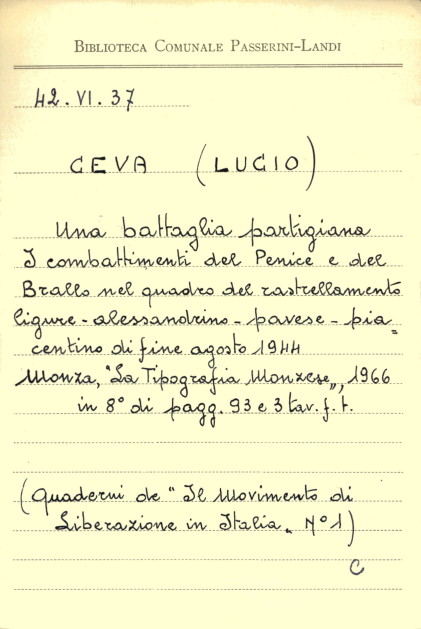 BIBLIOTECA COMUNALE PASSERINI-LANDI
42.VI.37
CEVA (LUCIO)
Una battaglia partigiana
I combattimenti del Penice e del
Brallo nel quadro del rastrellamento
ligure-alessandrino-pavese-pia=
centino di fine agosto 1944
Monza, "La Tipografia Monzese", 1966
in 8° di pagg. 93 e 3 tav. f. t.
(Quaderni de "Il Movimento di
Liberazione in Italia" N° 1)
C